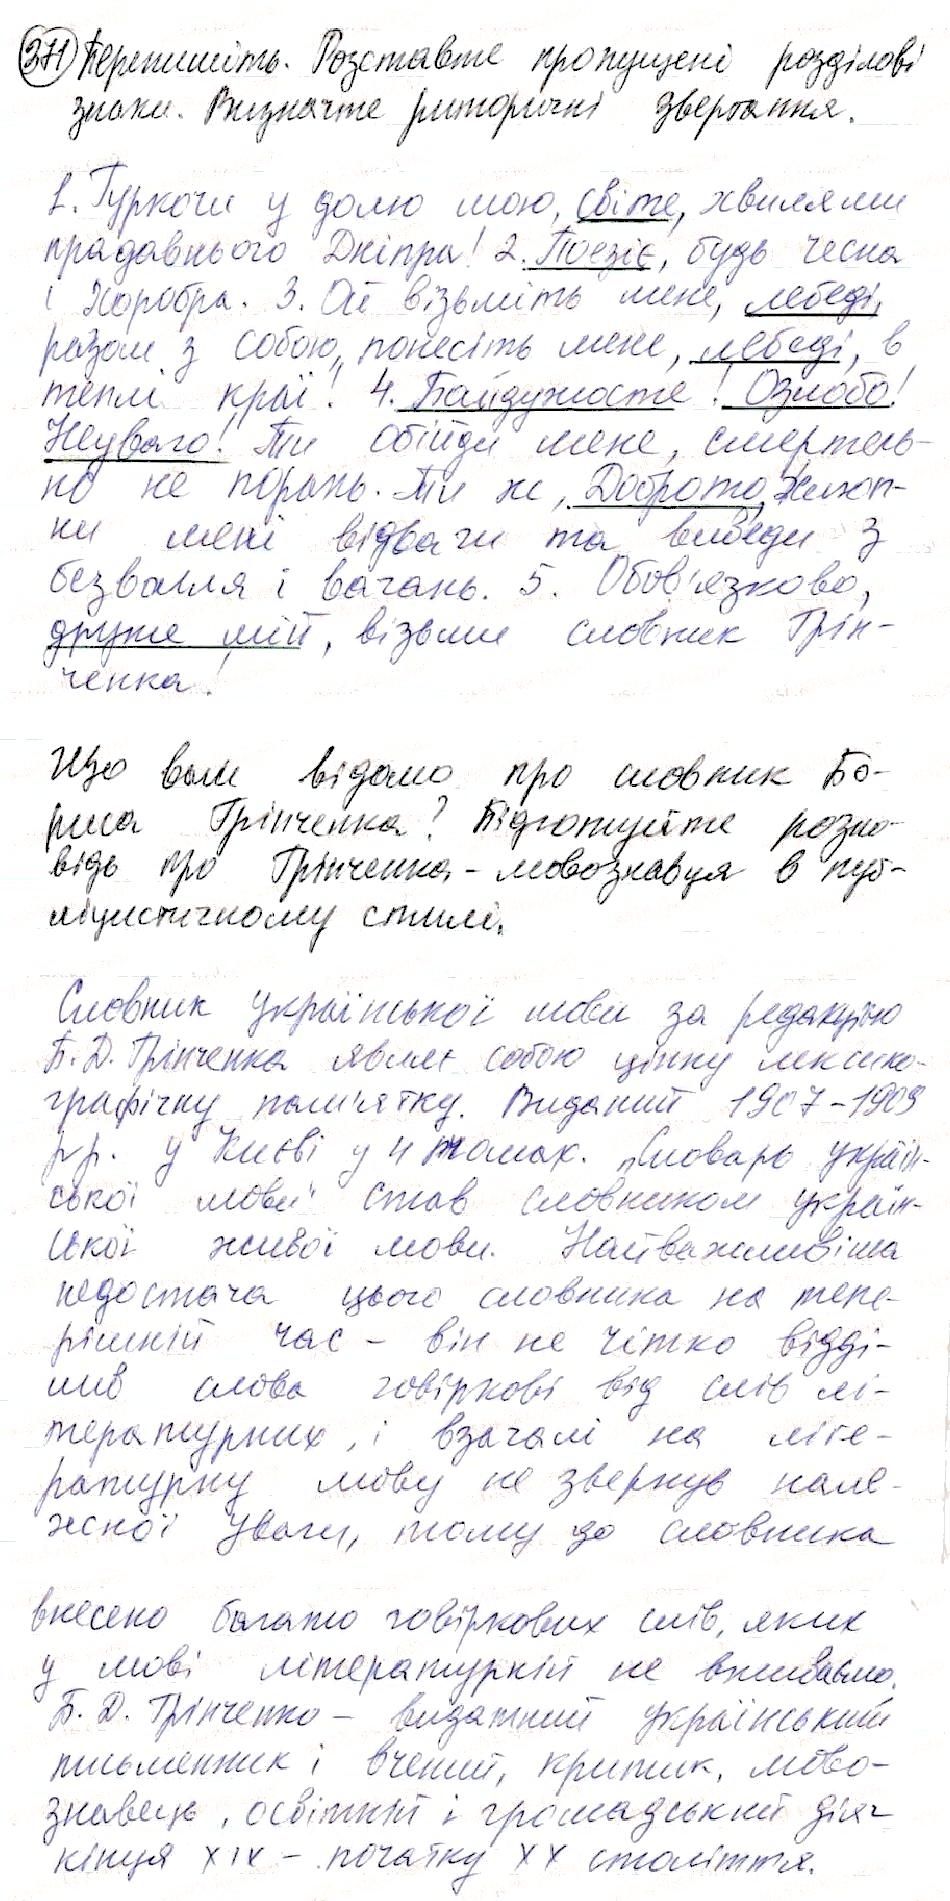 371 Перепишіть. Розставте пропущені розділові
знаки. Визначте риторичні звертання.
1. Гуркочи у долю мою, світе, хвилями
прадавнього Дніпра! 2. Поезіє, будь чесна
і хоробра. 3. Ой візьміть мене, лебеді,
разом з собою, понесіть мене, лебеді, в
теплі краї! 4. Байдужосте! Озлобо!
Неуваго! Ти обійди мене, смертель-
но не порань. Ти ж, Доброто, хлюп-
ни мені відваги та виведи з
безвілля і вагань. 5. Обов'язково,
друже мій, візьми словник Грін-
ченка!
Що вам відомо про словник Бо-
риса Грінченка? Підготуйте розпо-
відь про Грінченка-мовознавця в пуб-
ліцистичному стилі.
Словник української мови за редакцією
Б. Д. Грінченка являє собою цінну лексико-
графічну пам'ятку. Виданий 1907-1909
рр. у Києві у 4 томах. „Словарь україн-
ської мови" став словником україн-
ської живої мови. Найважливіша
недостача цього словника на тепе-
рішній час – він не чітко відді-
лив слова говіркові від слів лі-
тературних, і взагалі на літе-
ратурну мову не звернув нале-
жної уваги, тому до словника
внесено багато говіркових слів, яких
у мові літературній не вживаємо.
Б. Д. Грінченко – видатний український
письменник і вчений, критик, мово-
знавець, освітній і громадський діяч
кінця XIX – початку XX століття.